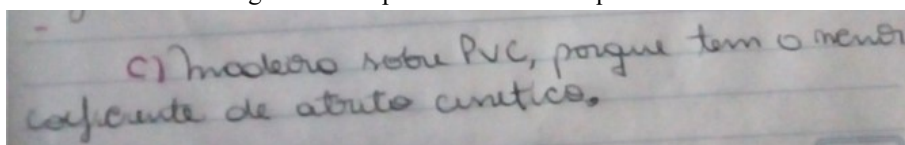 c) madeira sobre PVC, porque tem o menor
coeficiente de atrito cinético.